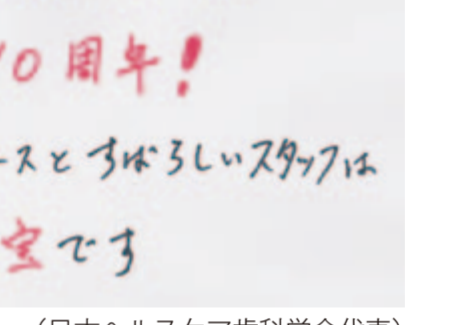 10周年!
ースとすばらしいスタッフは
宝です
(日本ヘルスケア歯科学会代表)